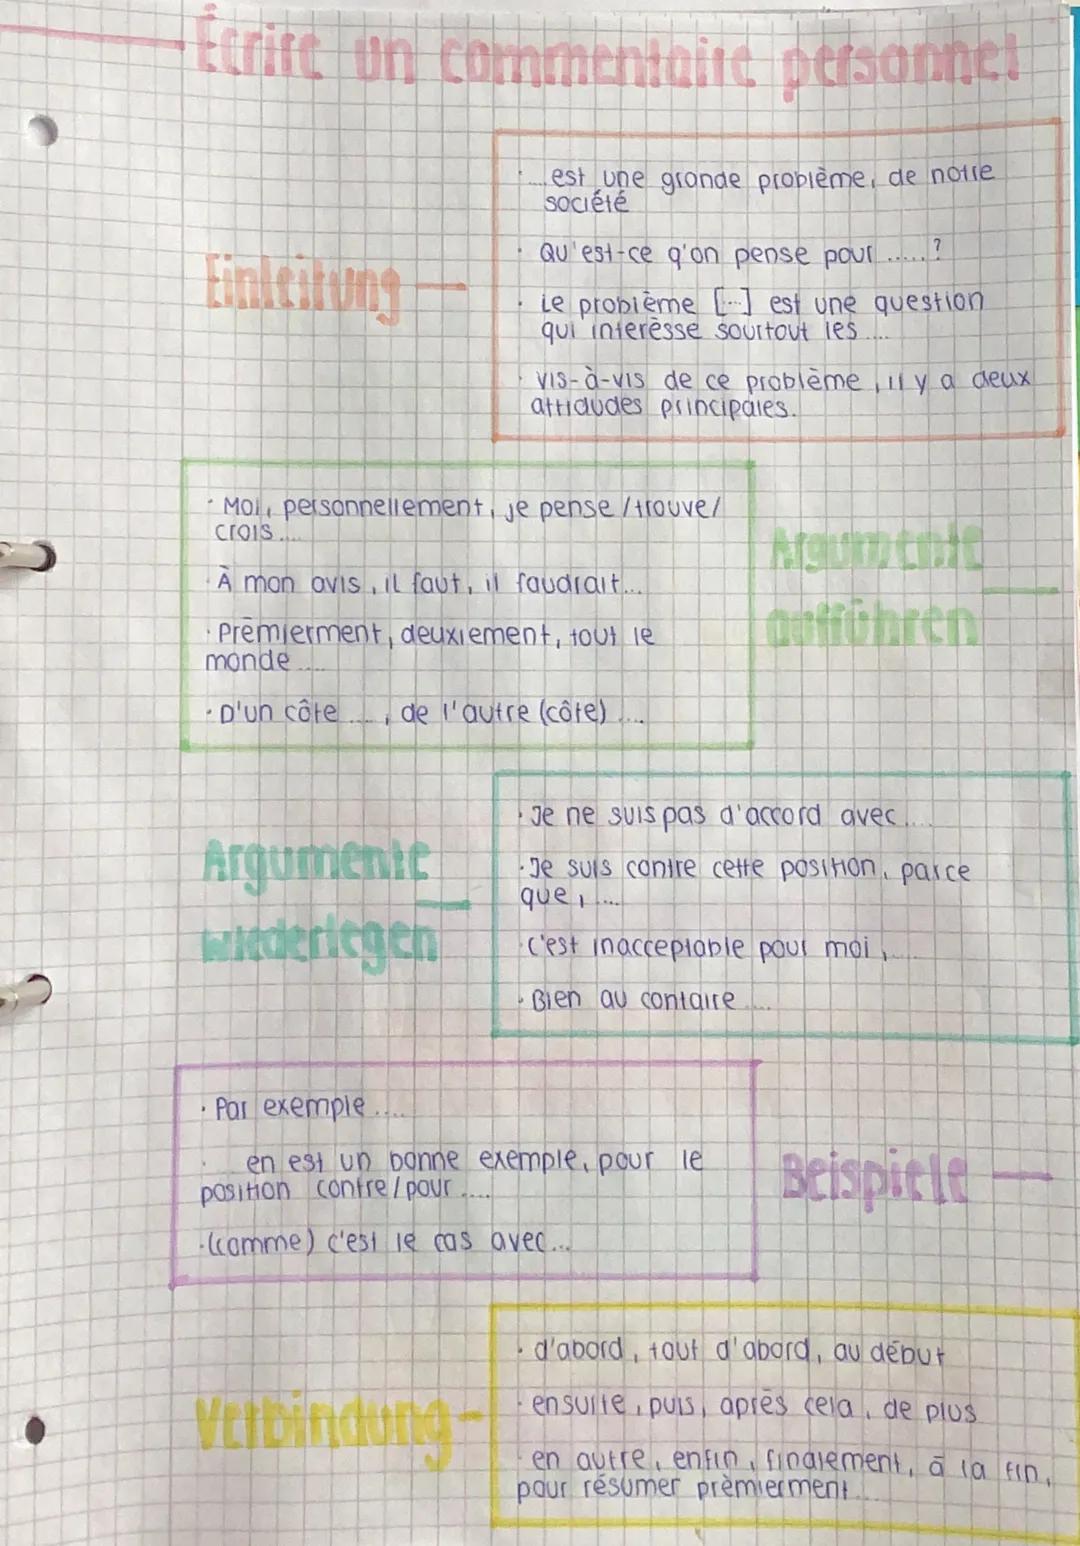 Écrire un commentaire personnel
Einleitung
· ....est une grande problème, de notre
société
· Qu'est-ce q'on pense pour .....?
· Le problème [...] est une question
qui interèsse sourtout les ....
· vis-à-vis de ce problème, il y a deux
attidudes principales.
· Moi, personnellement, je pense /trouve/
crois....
· À mon avis, il faut, il faudrait...
· Prèmierment, deuxiement, tout le
monde ....
· D'un côte ...., de l'autre (côte) ....
Argumente
aufführen
Argumente
wiederlegen
· Je ne suis pas d'accord avec....
· Je suis contre cette position, parce
que, ....
· C'est inacceptable pour moi, ....
· Bien au contaire ....
· Par exemple ....
· en est un bonne exemple, pour le
position contre/pour ....
· (comme) c'est le cas avec...
Beispiele
Verbindung
· d'abord, tout d'abord, au début
· ensuite, puis, après cela, de plus
· en outre, enfin, finalement, à la fin,
pour résumer prèmierment...